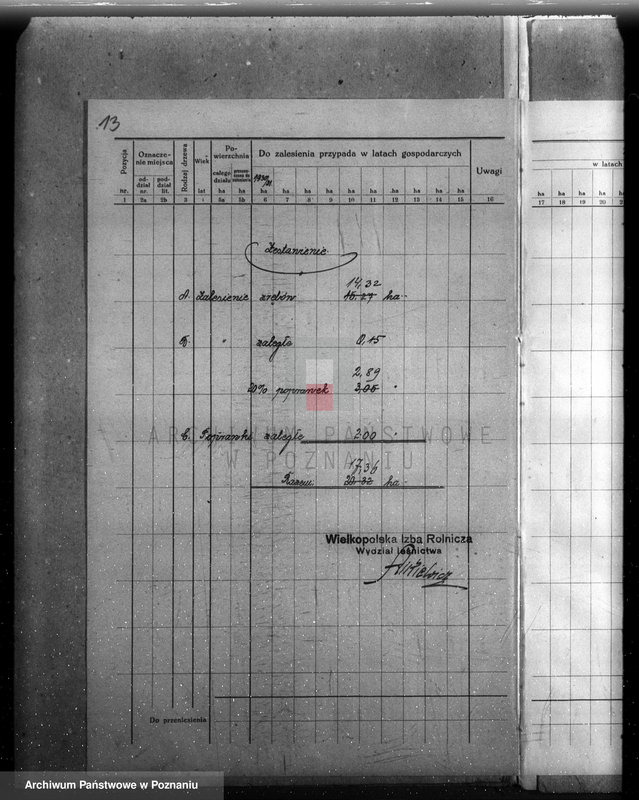 13
Pozycja nr.
Oznaczenie miejsca
oddział nr.
poddział lit.
Rodzaj drzewa
Wiek lat
Powierzchnia
całego działu ha
ha
Do zalesienia przypada w latach gospodarczych
1930/31
ha ha ha ha ha ha ha ha ha ha
Uwagi
1 2a 2b 3 4 5a 5b 6 7 8 9 10 11 12 13 14 15 16
w latach
ha ha ha ha
17 18 19 20
Zestawienie
14,32
A. Zalesienie zrębów 15.27 ha
B. " zaległe 0,15
2,89
20% poprawek 3,05 "
C. Poprawki zaległe 200 "
17,36
Razem 20.32 ha
ARCHIWUM PAŃSTWOWE
W POZNANIU
Wielkopolska Izba Rolnicza
Wydział leśnictwa
Do przeniesienia
Archiwum Państwowe w Poznaniu